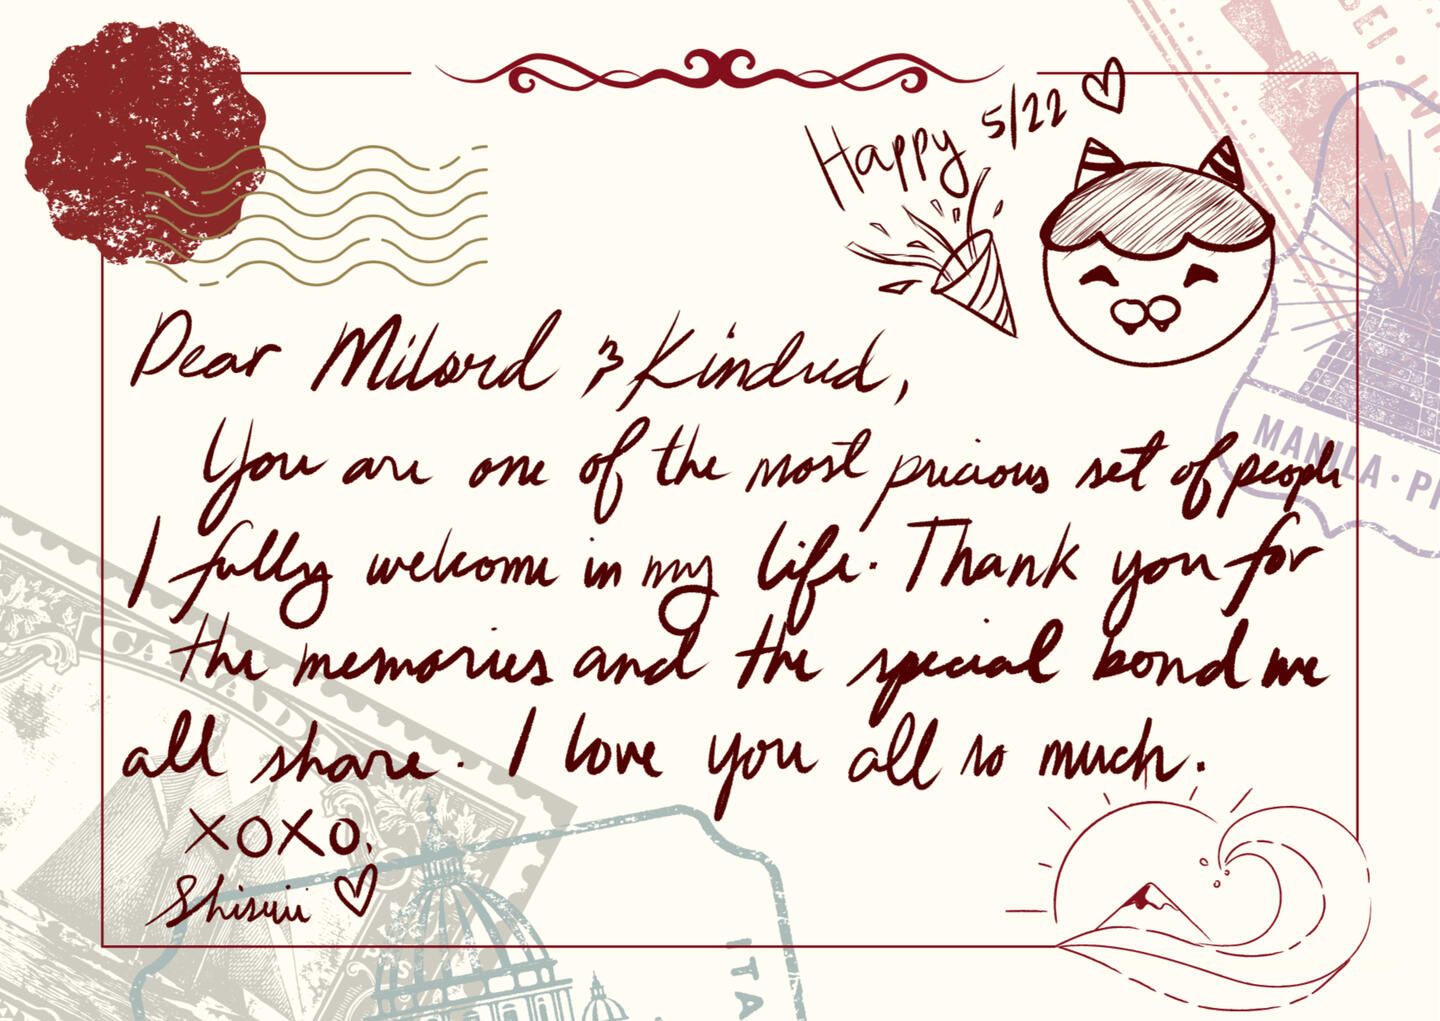 Happy 5/22
Dear Milord & Kindred,
You are one of the most precious set of people
I fully welcome in my life. Thank you for
the memories and the special bond we
all share. I love you all so much.
XOXO,
MANILA · P
CANADA
ITA